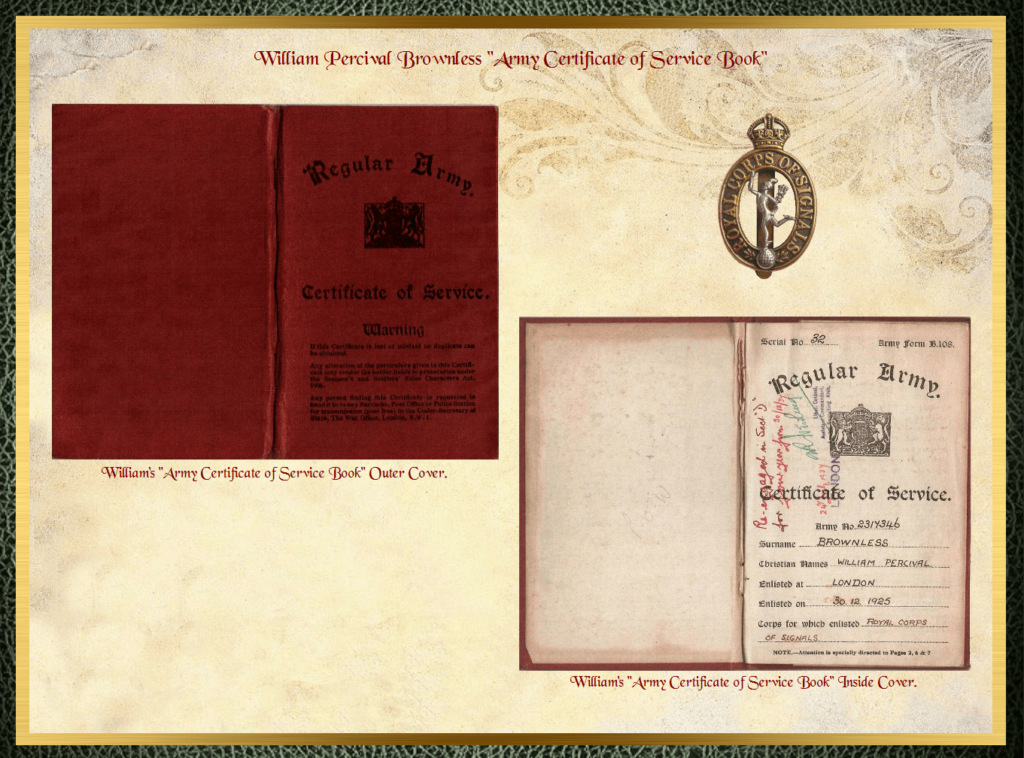 William Percival Brownless "Army Certificate of Service Book"
Regular Army.
Certificate of Service.
Warning
If this Certificate is lost or mislaid no duplicate can
be obtained.
Any alteration of the particulars given in this Certifi-
cate may render the holder liable to prosecution under
the Seamen's and Soldiers' False Characters Act,
Any person finding this Certificate is requested to
hand it in to any Barracks, Post Office or Police Station
for transmission (post free) to the Under-Secretary of
State, The War Office, London, S.W.1.
William's "Army Certificate of Service Book" Outer Cover.
ROYAL CORPS OF SIGNALS
Serial No 32
Army Form B.108.
Regular Army.
Re-engaged in Sect 'D'
for one year from
LONDON
Certificate of Service.
Army No. 2314346
Surname BROWNLESS
Christian Names WILLIAM PERCIVAL
Enlisted at LONDON
Enlisted on 30. 12. 1925
Corps for which enlisted ROYAL CORPS
OF SIGNALS
NOTE.—Attention is specially directed to Pages 3, 6 & 7
William's "Army Certificate of Service Book" Inside Cover.